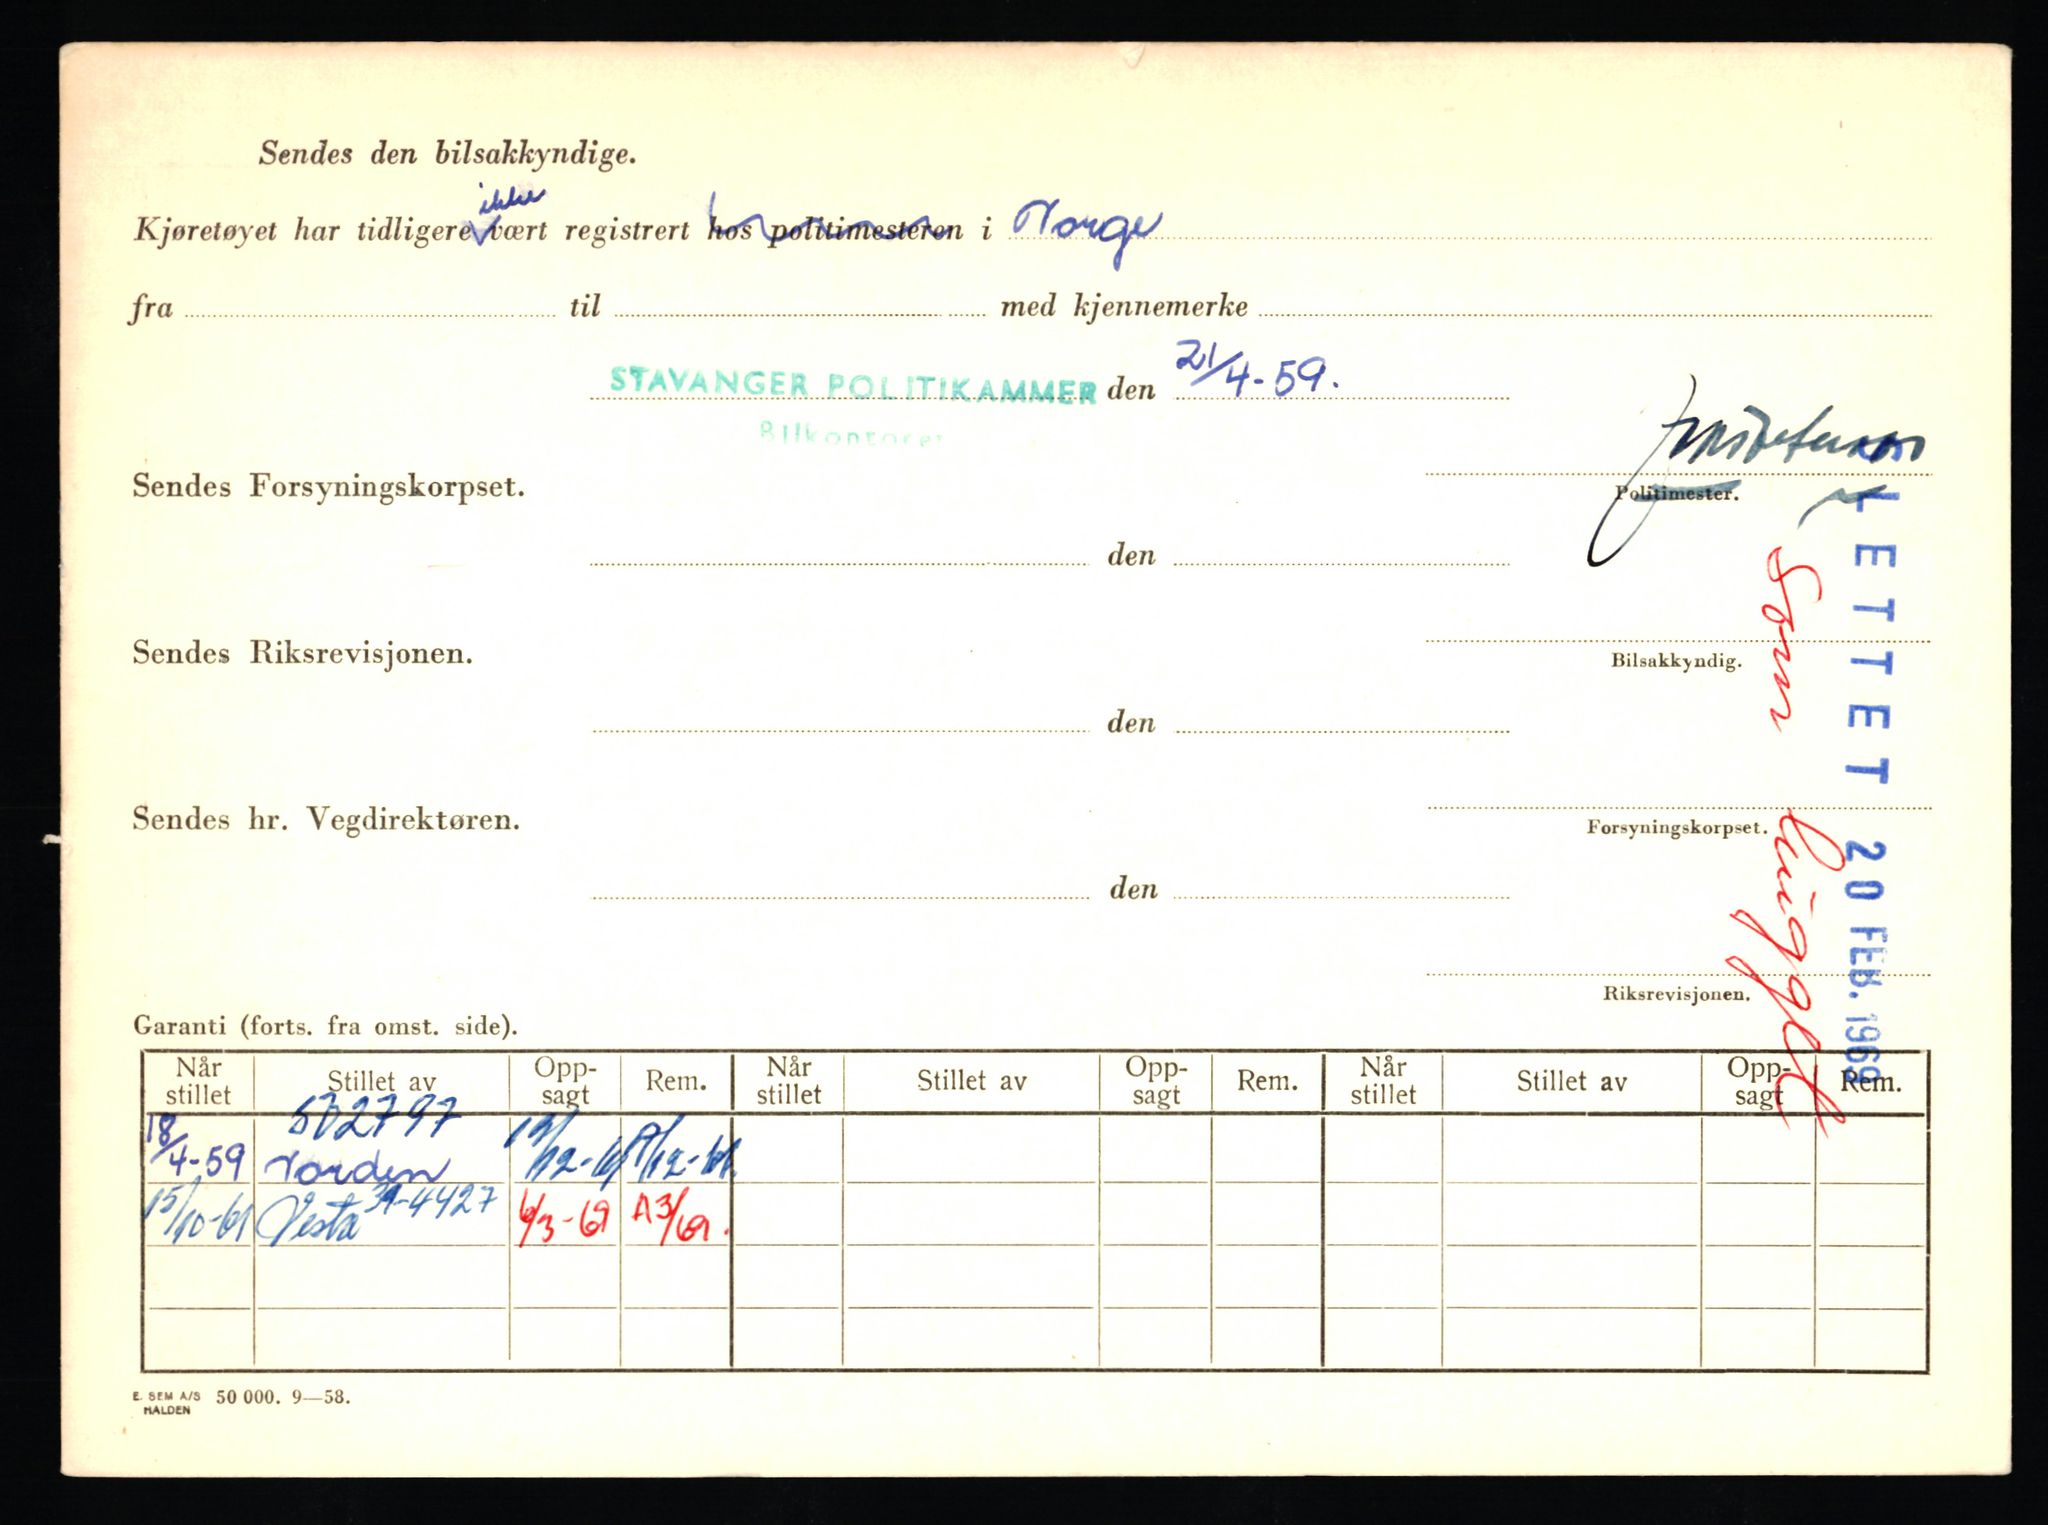 Sendes den bilsakkyndige.
ikke
Kjøretøyet har tidligere vært registrert hos politimesteren i Norge
fra til med kjennemerke
STAVANGER POLITIKAMMER den 21/4-59.
Bilkontoret
Sendes Forsyningskorpset.
Politimester.
den
Sendes Riksrevisjonen.
Bilsakkyndig.
den
Sendes hr. Vegdirektøren.
Forsyningskorpset.
den
Riksrevisjonen.
SLETTET 20 FEB. 1969
Som hugget
Garanti (forts. fra omst. side).
Når stillet Stillet av Opp-sagt Rem. Når stillet Stillet av Opp-sagt Rem. Når stillet Stillet av Opp-sagt Rem.
502797
18/4-59 Norden 19/12-61 9/12-61.
15/10-61 Vesta 39-4427 6/3-69 A3/69.
E. SEM A/S HALDEN 50 000. 9—58.